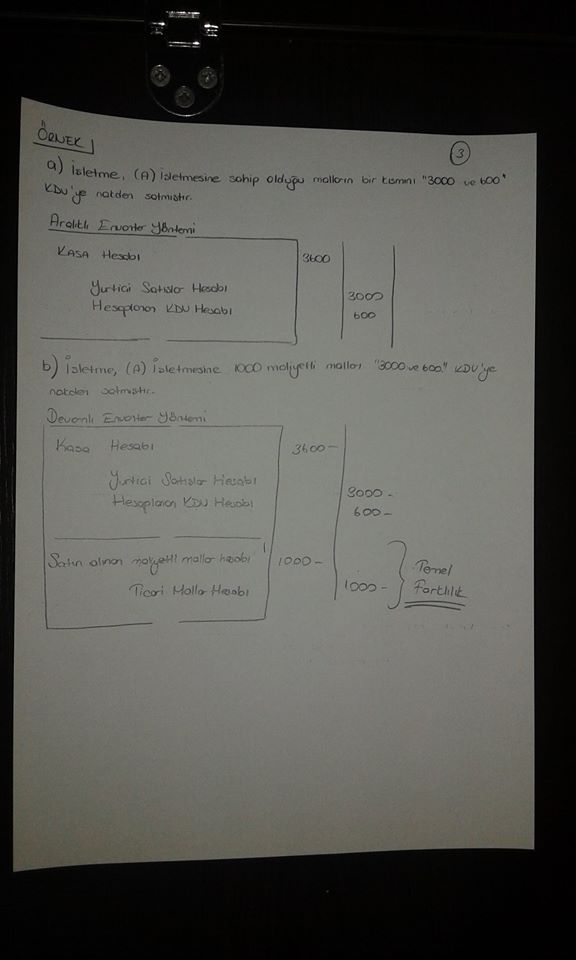 ÖRNEK
3
a) İşletme, (A) İşletmesine sahip olduğu malların bir kısmını "3000 ve 600"
KDV'ye nakden satmıştır.
Aralıklı Envanter Yöntemi
KASA Hesabı 3600
Yurtiçi Satışlar Hesabı 3000
Hesaplanan KDV Hesabı 600
b) İşletme, (A) İşletmesine 1000 maliyetli malları "3000 ve 600." KDV'ye
nakden satmıştır.
Devamlı Envanter Yöntemi
Kasa Hesabı 3600-
Yurtiçi Satışlar Hesabı 3000-
Hesaplanan KDV Hesabı 600-
Satın alınan maliyetli mallar hesabı 1000-
Ticari Mallar Hesabı 1000-
Temel
Farklılık